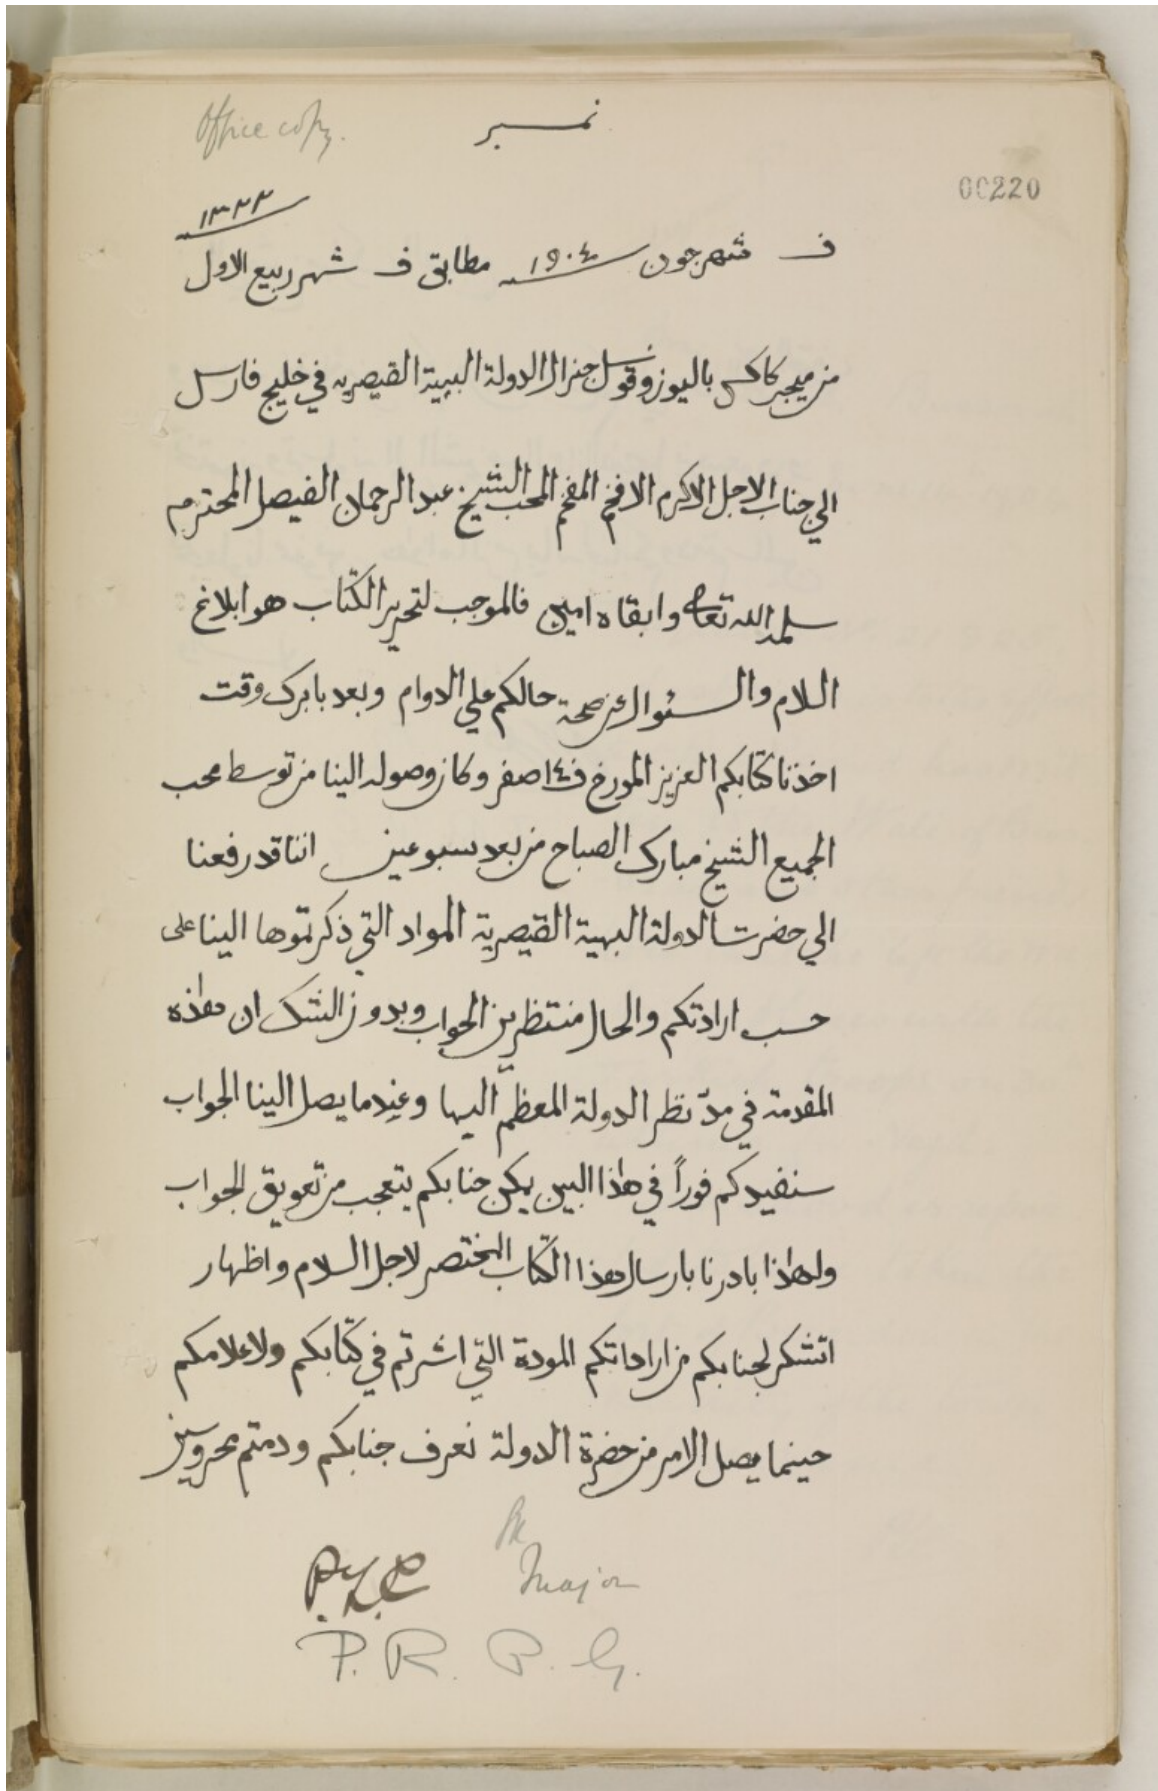 Office copy.
نمبر
00220
١٣٢٢
ف شهر جون ١٩٠٤ مطابق ف شهر ربيع الاول
من ميجر كاكس باليوز وقونسل جنرال الدولة البهية القيصريه في خليج فارس
الي جناب الاجل الاكرم الافخم المفخم المحب الشيخ عبد الرحمان الفيصل المحترم
سلمه الله تعالى وابقاه امين فالموجب لتحرير الكتاب هو ابلاغ
السلام والسئوال عن صحة حالكم علي الدوام وبعد بابرك وقت
اخذنا كتابكم العزيز المورخ ف ١٤ صفر وكان وصوله الينا من توسط محب
الجميع الشيخ مبارك الصباح من بعد سبوعين اننا قد رفعنا
الي حضرت الدولة البهية القيصرية المواد التي ذكرتموها الينا على
حسب ارادتكم والحال منتظرين الجواب وبدون الشك ان هذه
المقدمة في مدّ نظر الدولة المعظم اليها وعندما يصل الينا الجواب
سنفيدكم فوراً في هذا البين يمكن جنابكم يتعجب من تعويق الجواب
ولهذا بادرنا بارسال هذا الكتاب المختصر لاجل السلام واظهار
اتشكر لجنابكم من اراداتكم المودة التي اشرتم في كتابكم ولاعلامكم
حينما يصل الامر من حضرة الدولة نعرف جنابكم ودمتم محروسين
P.Z.C
Major
P. R. P. G.